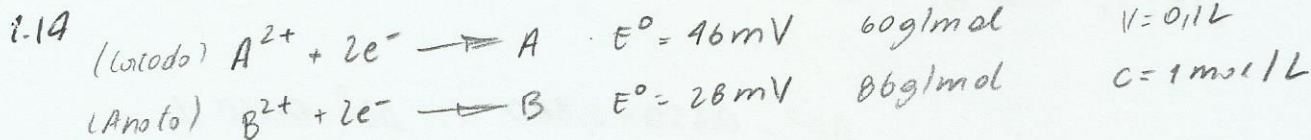 1.14 (Catodo) A²⁺ + 2e⁻ → A · E° = 46mV 60g/mol V = 0,1L
(Anoto) B²⁺ + 2e⁻ → B E° = 28mV 86g/mol C = 1mol/L